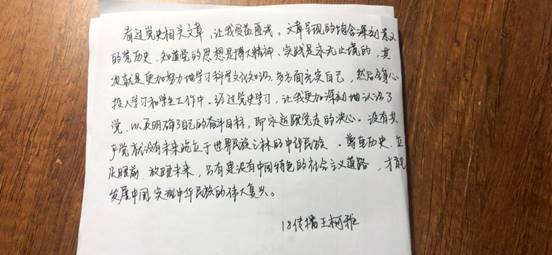 看过党史相关文章，让我受益匪浅，文章呈现的饱含深刻意义
的党历史，知道党的思想是博大精神、实践是永无止境的，其
次就是更加努力地学习科学文化知识，多方面充实自己，然后全心
投入学习和学生工作中。经过党史学习，让我更加深刻地认识了
党，以及明确了自己的奋斗目标，即永远跟党走的决心。没有共
产党就没有未来屹立于世界民族之林的中华民族。尊重历史，立
足眼前，放眼未来，只有建设有中国特色的社会主义道路，才能
发展中国，实现中华民族的伟大复兴。
18传播王柯雅